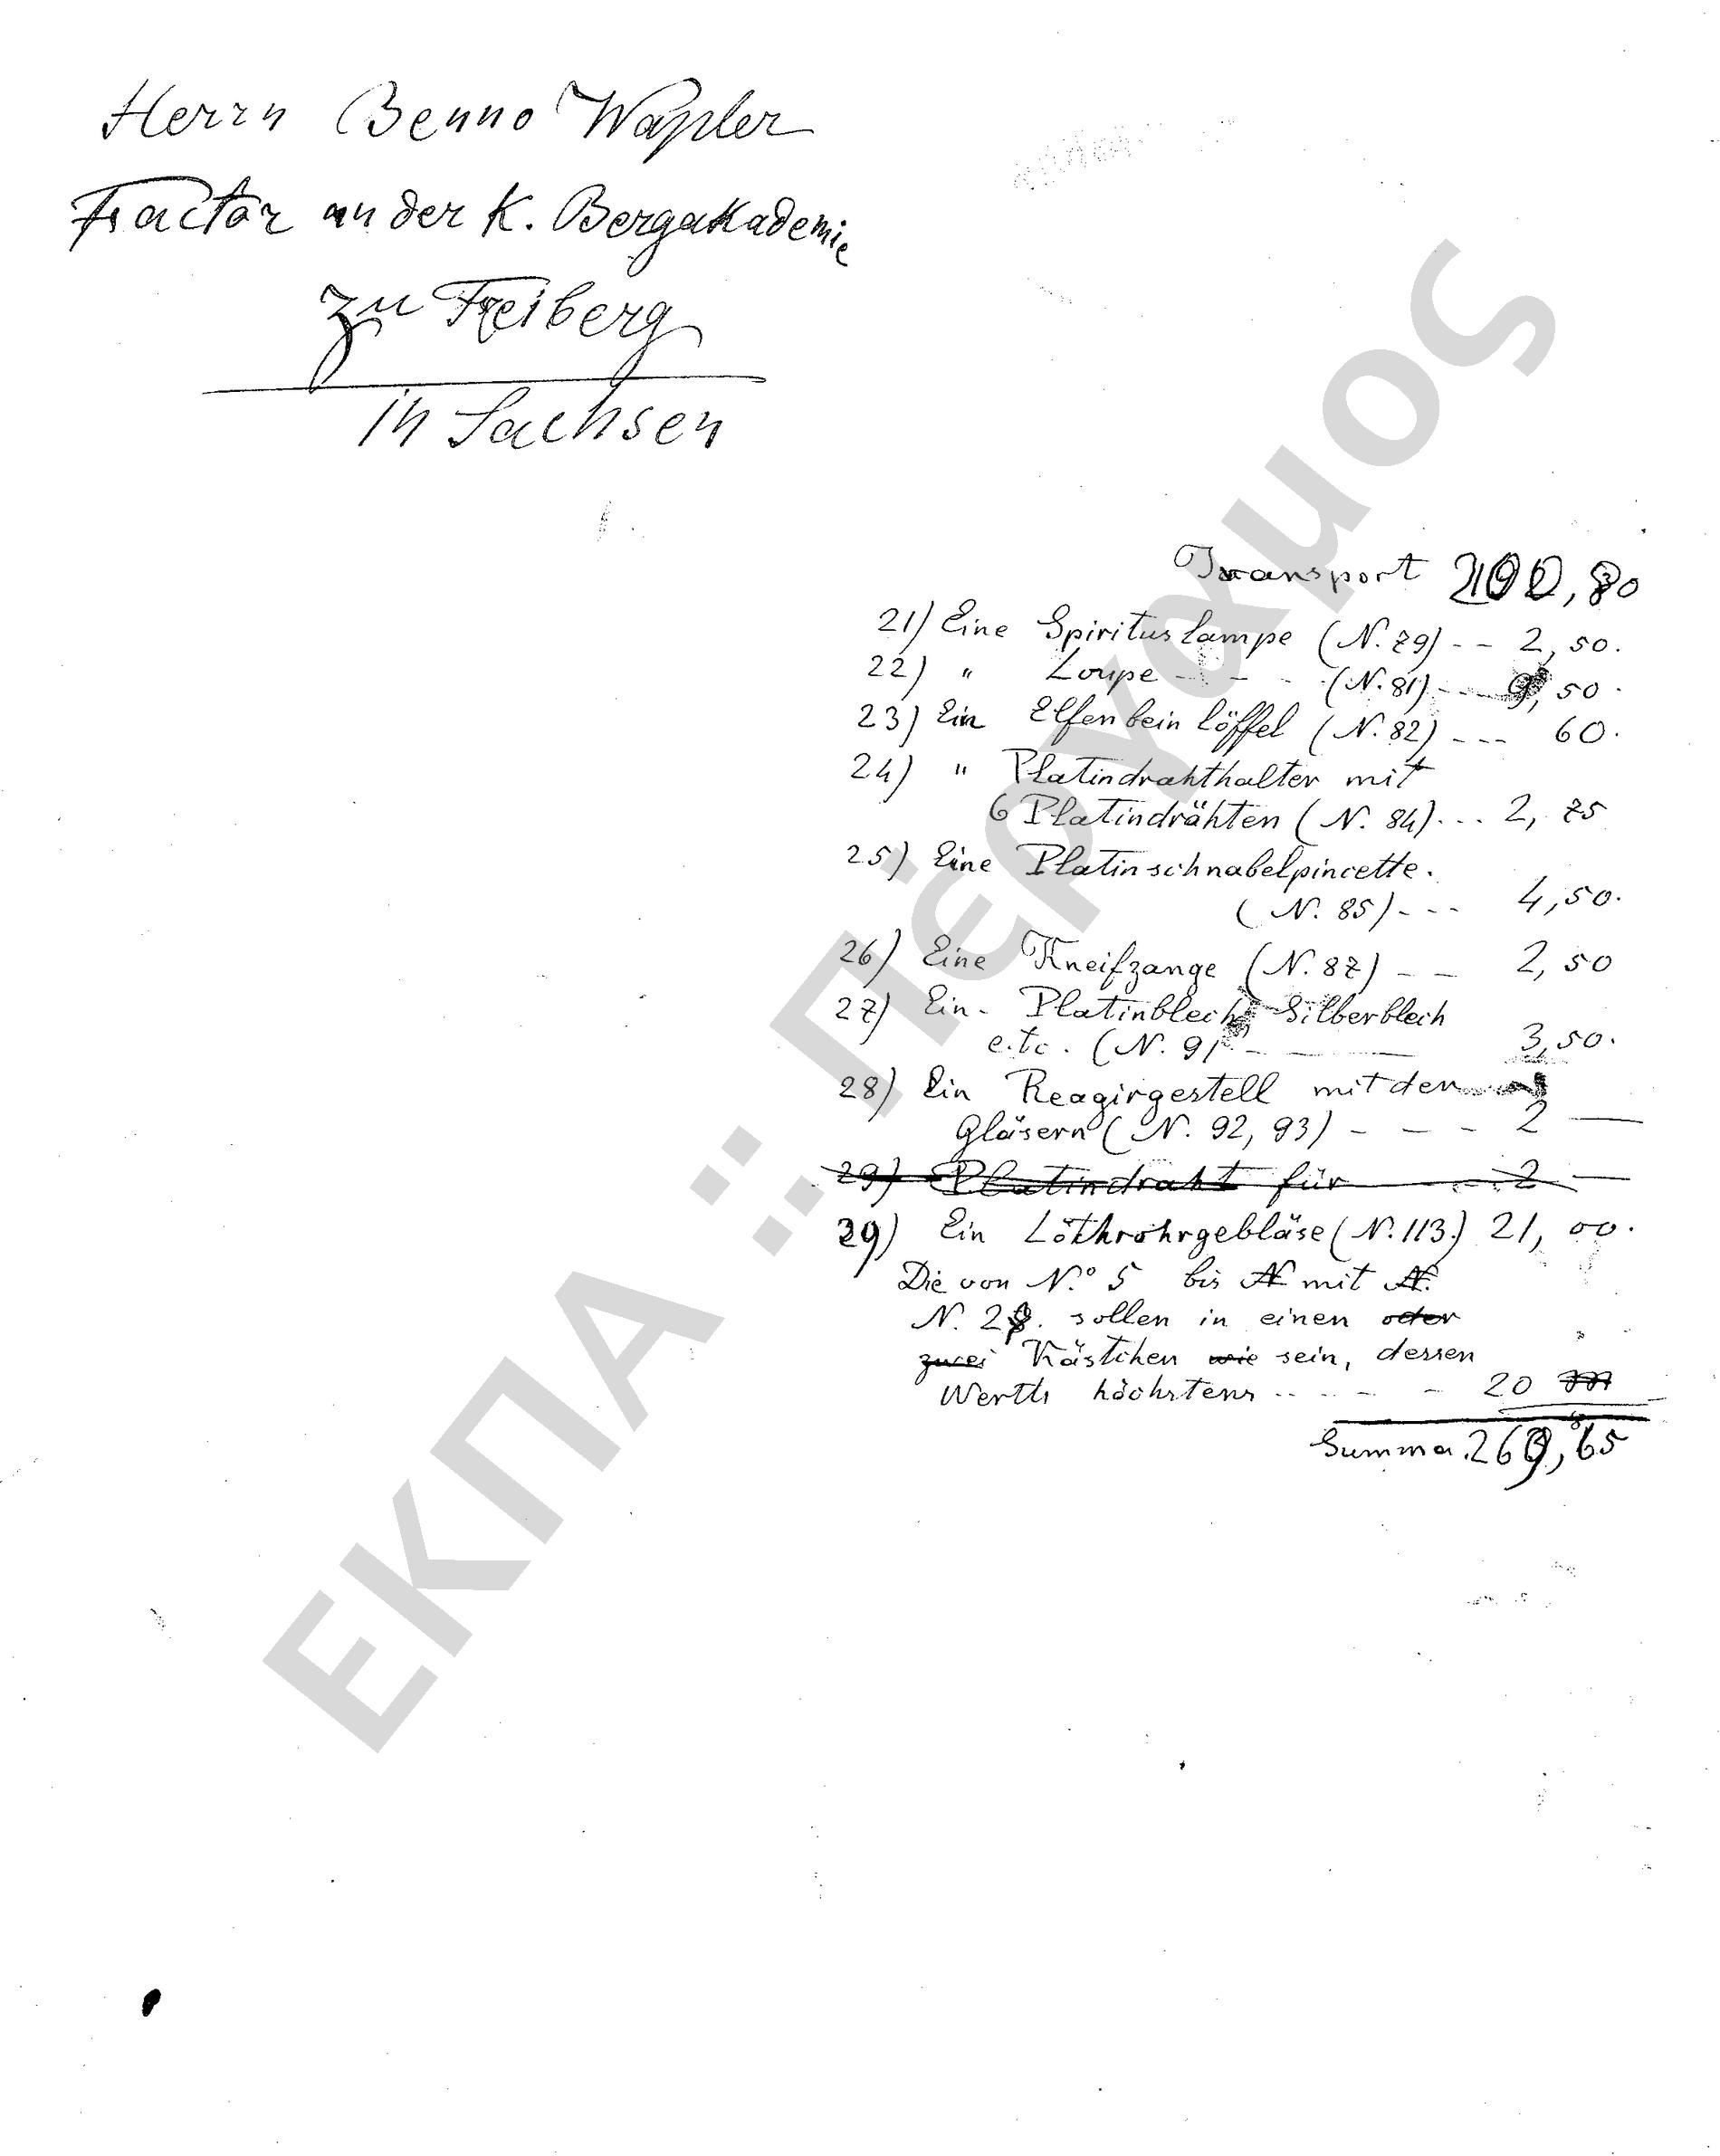 Herrn Benno Wapler
Factor an der K. Bergakademie
zu Freiberg
in Sachsen
Transport 200,80
21) Eine Spirituslampe (N. 79) -- 2,50.
22) " Loupe - - - (N. 81) --- 9,50.
23) Ein Elfenbeinlöffel (N. 82) --- 60.
24) " Platindrahthalter mit
6 Platindrähten (N. 84) ... 2,75
25) Eine Platinschnabelpincette.
(N. 85) --- 4,50.
26) Eine Kneifzange (N. 87) -- 2,50
27) Ein- Platinblech Silberblech
e.tc. (N. 91 - — 3,50.
28) Ein Reagirgestell mit den
Gläsern (N. 92, 93) - - - 2 —
29) Platindraht für — 2 —
29) Ein Löthrohrgebläse (N. 113.) 21,00.
Die von N.º 5 bis N mit N.
N. 28. sollen in einen oder
zwei Kästchen wie sein, dessen
Werth höchstens .. - - 20 M
Summa 269,65
ΕΚΠΑ :: Πέργαμος